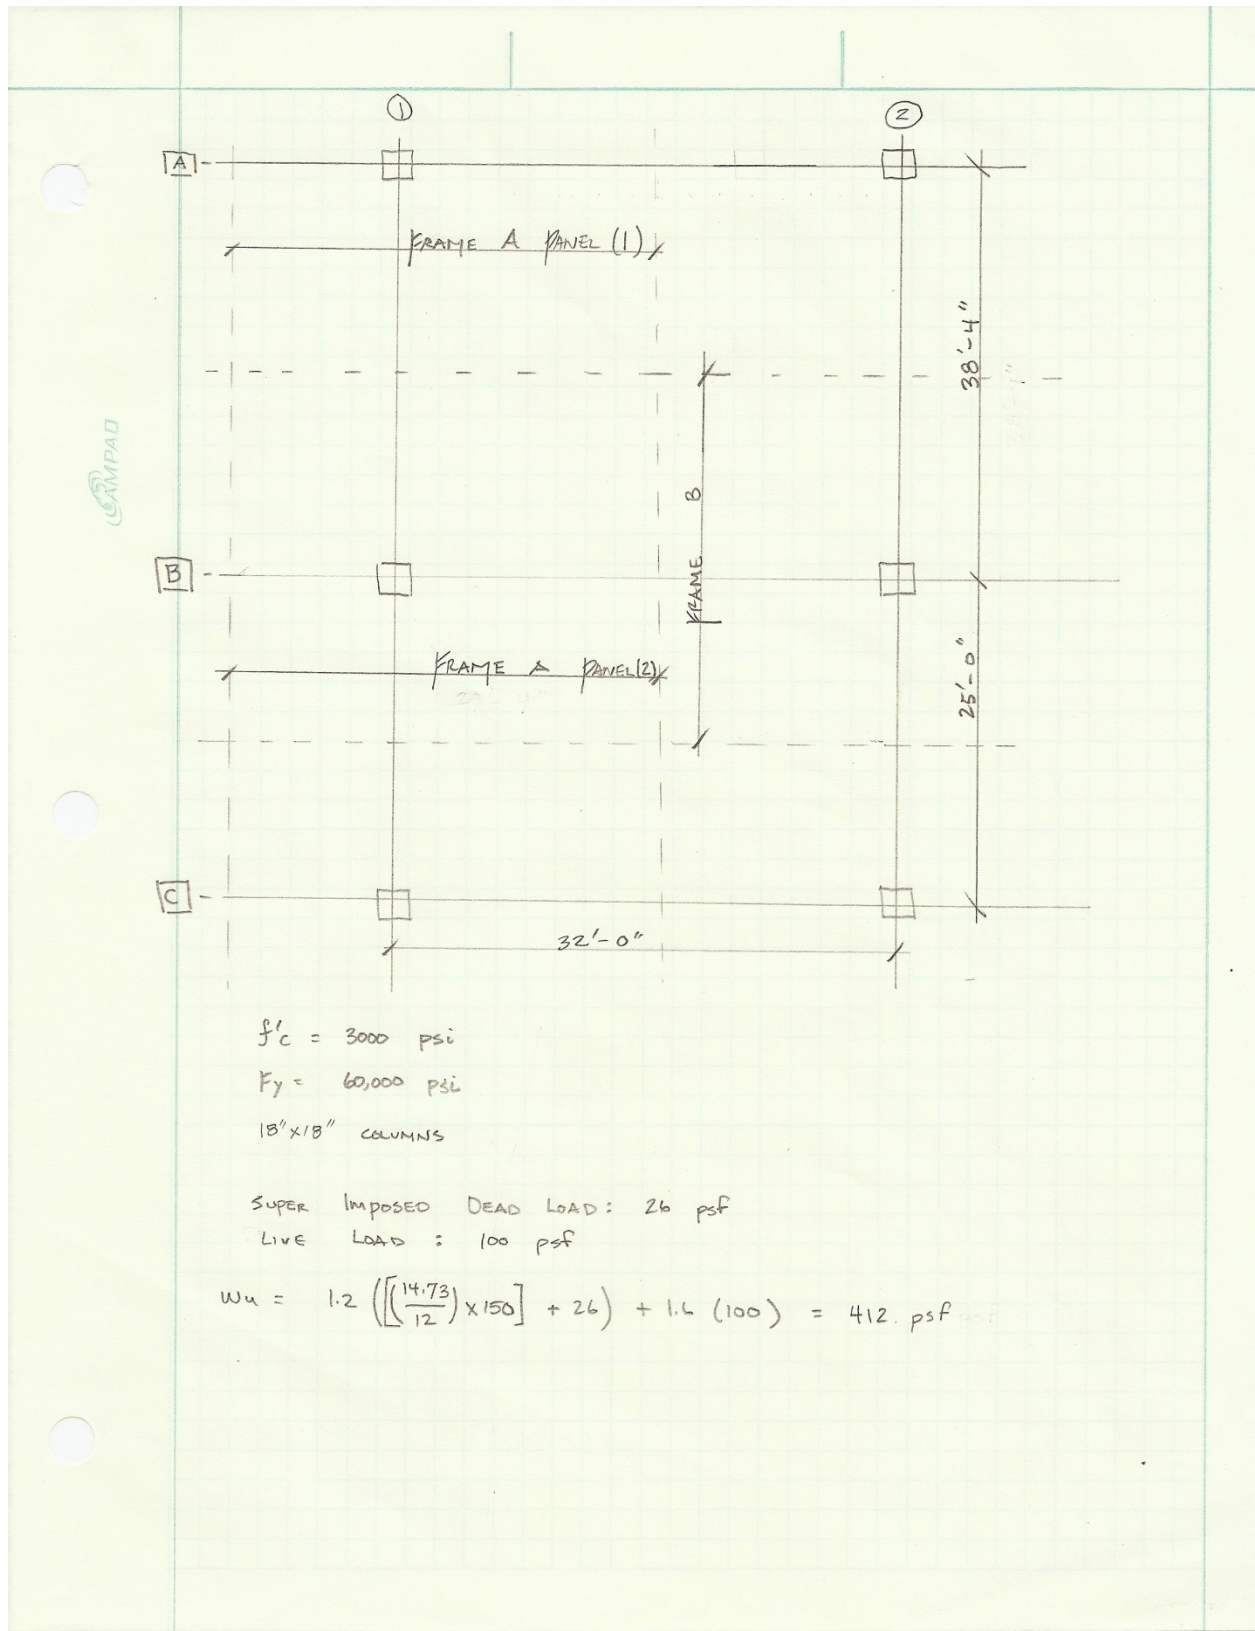 1
2
A
FRAME A PANEL (1)
38'-4"
FRAME B
AMPAD
B
FRAME A PANEL(2)
25'-0"
C
32'-0"
f'c = 3000 psi
Fy = 60,000 psi
18"x18" COLUMNS
SUPER IMPOSED DEAD LOAD: 26 psf
LIVE LOAD : 100 psf
Wu = 1.2 ([(14.73/12) x 150] + 26) + 1.6 (100) = 412. psf